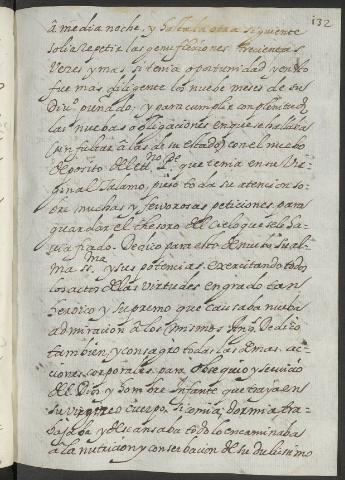 132
â media noche, y hasta la otra siguiente
solia repetir las genuflexiones trecientas
veres y mas, si tenia oportunidad, y en esto
fue mas diligente los nuebe meses de su
Divº preñado; y para cumplir con plenitud
las nuebas obligaciones en que se hallaba
sin faltar â las de su estado, con el nuebo
deposito del que tenia en su Vir-
ginal talamo, puso toda su atencion so-
bre muchas y fervorosas peticiones para
guardar el thesoro del Cielo que se le ha-
via fiado. Dedico para esto de nuevo su al-
ma SSma. y sus potencias, exercitando todos
los actos de las virtudes en grado tan
heroico y supremo que causaba nueba
admiracion â los mismos Angs. Dedico
tambien, y consagro todas las demas ac-
ciones corporales para obsequio y servicio
del Dios, y hombre Infante que traya en
su Virgineo cuerpo. Si comia, dormia, tra-
bajaba, y descansaba todo lo encaminaba
â la nutricion y conserbacion de su dulcissimo